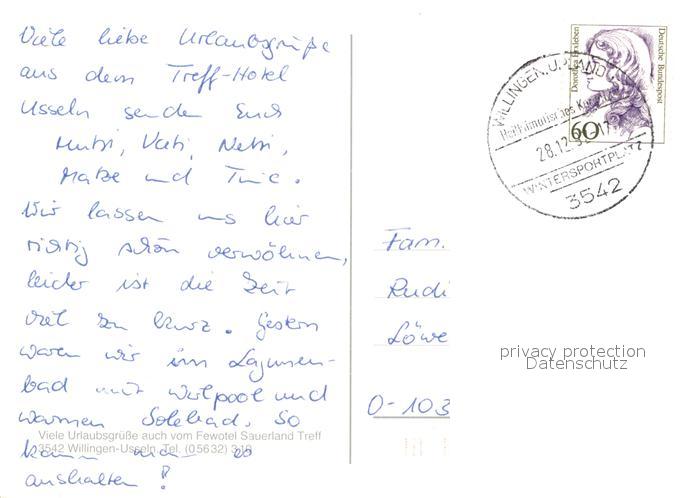 Viele liebe Urlaubsgrüße
aus dem Treff-Hotel
Usseln senden Euch
Mutti, Vati, Netti,
Matze und Tinc.
Wir lassen uns hier
richtig schön verwöhnen,
leider ist die Zeit
viel zu kurz. Gestern
waren wir im Lagunen-
bad mit Wirlpool und
warmen Solebad. So
kann man es
aushalten!
Viele Urlaubsgrüße auch vom Fewotel Sauerland Treff
3542 Willingen-Usseln, Tel. (05632) 310
Dorothea Erxleben
60
Deutsche Bundespost
WILLINGEN, UPLAND
Heilklimatisches
28.12.
WINTERSPORTPLATZ
3542
Fam.
Rudi
Löwe
O-103
privacy protection
Datenschutz